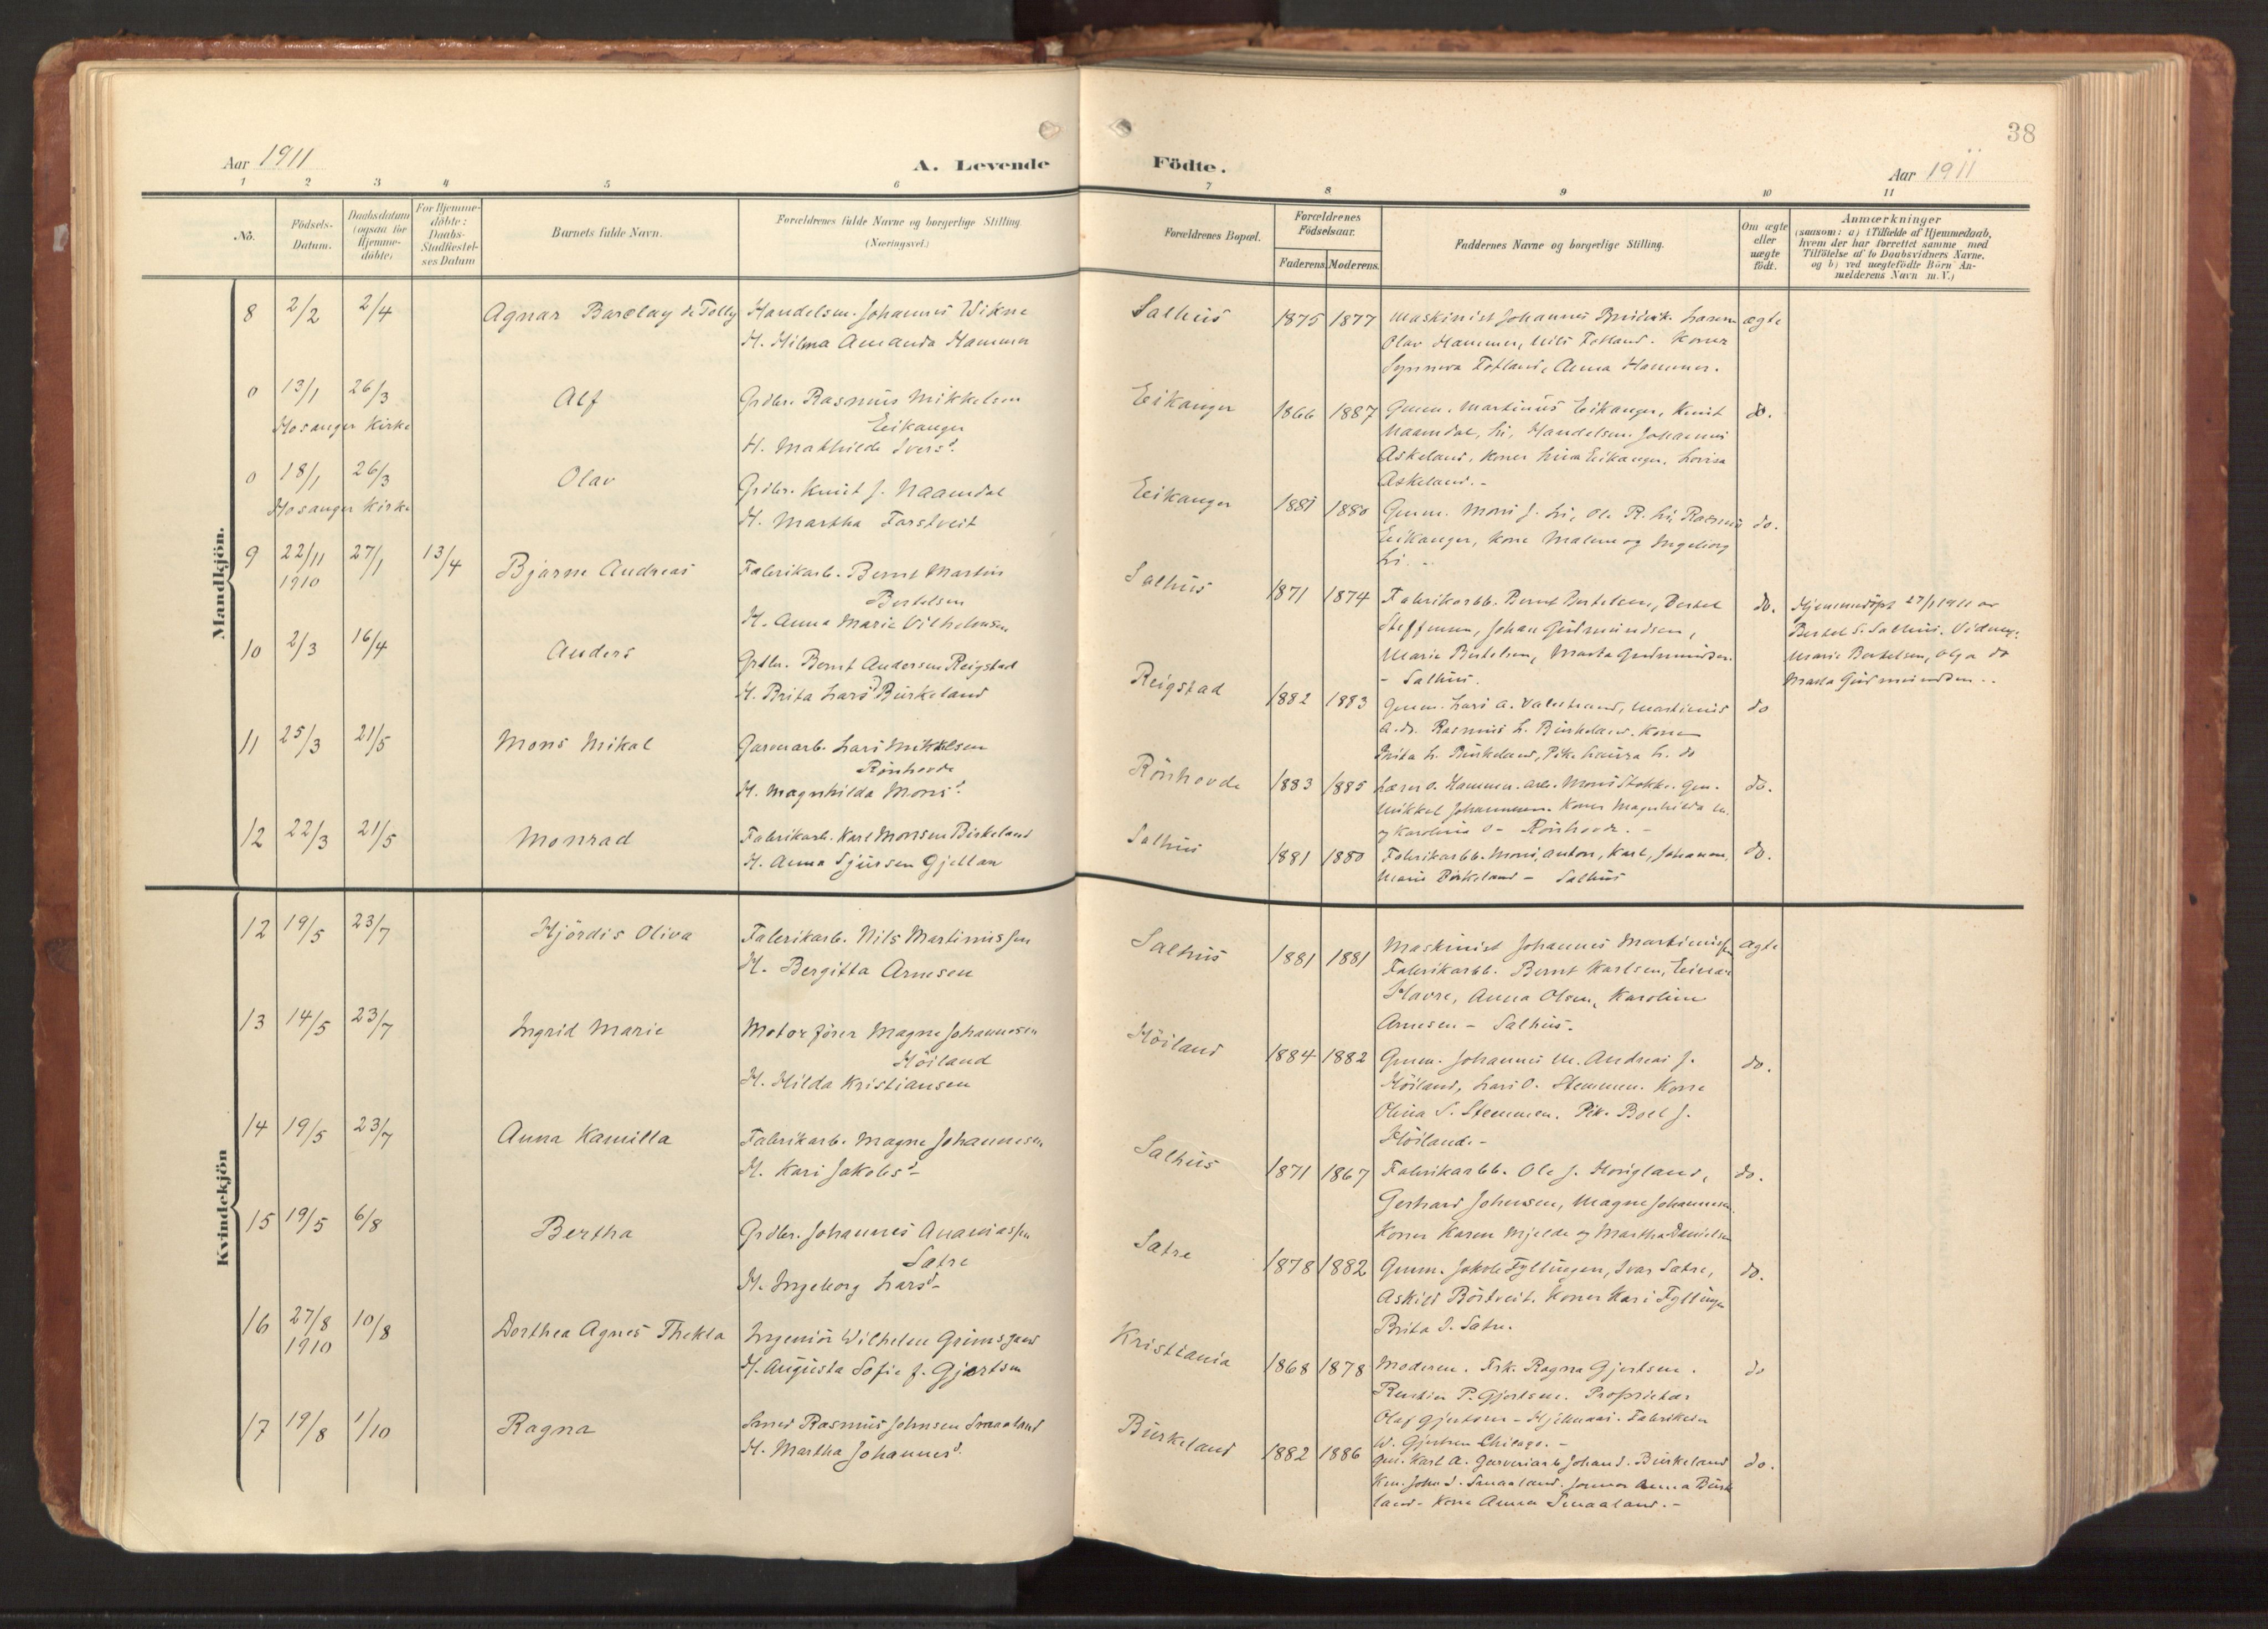 38
Aar 1911
A. Levende
Födte.
Aar 1911
1 2 3 4 5 6 7 8 9 10 11
No.
Födsels-Datum.
Daabsdatum (ogsaa for Hjemme-döbte)
For Hjemme-döbte: Daabs-Stadfæstel-ses Datum
Barnets fulde Navn.
Forældrenes fulde Navne og borgerlige Stilling.
(Næringsvei.)
Forældrenes Bopæl.
Forældrenes Födselsaar.
Faderens. Moderens.
Faddernes Navne og borgerlige Stilling.
Om ægte eller uægte födt.
Anmærkninger
(saasom: a) i Tilfælde af Hjemmedaab,
hvem der har forrettet samme med
Tilföielse af to Daabsvidners Navne.
og b) ved uægtefödte Börn An-
melderens Navn m. V.)
Mandkjön.
8 2/2 2/4 Agnar Barclay de Tolly Handelsm. Johannes Wikne Salhus 1875 1877 Maskinist Johannes Larsen ægte
H. Hilma Amanda Hammer Olav Hammer, Nils Fotland. Koner
Synneva Fotland, Anna Hammer.
0 13/1 26/3 Alf Grdbr. Rasmus Mikkelsen Eikanger 1866 1887 Gmm. Martinus Eikanger, Knut do.
Hosanger Kirke Eikanger Naamdal, Li, Handelsm. Johannes
H. Mathilde Iversd. Askeland, Koner Eikanger, Lovisa
Askeland.-
0 18/1 26/3 Olav Grdbr. Knut J. Naamdal Eikanger 1881 1880 Gmm. Mons J. Li, Ole R. Li, Rasmus do.
Hosanger Kirke H. Martha Farstveit Eikanger, Kone Malene og Ingeborg
Li. -
9 22/11 1910 27/1 13/4 Bjarne Andreas Fabrikarb. Bernt Martin Salhus 1871 1874 Fabrikarbb. Bernt Bertelsen, Bertel do. Hjemmedöpt 27/1 1911 av
Bertelsen Steffensen, Johan Gudmundsen, Bertel S. Salhus. Vidner:
H. Anna Marie Vilhelmsen Marie Bertelsen, Marta Gudmundsen Marie Bertelsen, Olga do
- Salhus. Marta Gudmundsen ..
10 2/3 16/4 Anders Grdbr. Bernt Andersen Reigstad Reigstad 1882 1883 Gmm. Lars A. Valestrand, Martinus do
H. Brita Larsd. Birkeland A. do. Rasmus L. Birkeland. Kone
Brita L. Birkeland, Pik. Laura L. do
11 25/3 21/5 Mons Mikal Garverarb. Lars Mikkelsen Rönhovde 1883 1885 Lærer O. Hammer. Arb. Mons Stokke. Gm. do.
Rönhovde Mikkel Johannesen. Koner Magnhilda M.
H. Magnhilda Monsd. og Karolina O - Rönhovde. -
12 22/3 21/5 Monrad Fabrikarb. Karl Monsen Birkeland Salhus 1881 1880 Fabrikarbb. Mons, Anton, Karl, Johannes, do.
H. Anna Sjursen Gjellan Marie Birkeland - Salhus
Kvindekjön
12 19/5 23/7 Hjördis Oliva Fabrikarb. Nils Martinussen Salhus 1881 1881 Maskinist Johannes Martinussen ægte
H. Bergitta Arnesen Fabrikarbb. Bernt Karlsen, Einar
Havre, Anna Olsen, Karoline
Arnesen - Salhus.
13 14/5 23/7 Ingrid Marie Motorförer Magne Johannesen Höiland 1884 1882 Gmm. Johannes M. Andreas J. do.
Höiland Höiland, Lars O. Stemmen. Kone
H. Hilda Kristiansen Olina S. Stemmen. Pik. Boel J.
Höiland.-
14 19/5 23/7 Anna Kamilla Fabrikarb. Magne Johannesen Salhus 1871 1867 Fabrikarbb. Ole J. Hougland, do.
H. Kari Jakobsd. Gerhard Johnsen, Magne Johannesen.
Koner Karen Mjelde og Martha Danielsen
15 19/5 6/8 Bertha Grdbr. Johannes Ananiassen Sætre 1878 1882 Gmm. Jakob Fyllingen, Ivar Sætre, do.
Sætre Askild Börtveit. Koner Kari Fyllingen
H. Ingeborg Larsd. Brita I. Sætre.
16 27/8 1910 10/8 Dorthea Agnes Thekla Ingeniör Wilhelm Grimsgaard Kristiania 1868 1878 Moderen. Frk. Ragna Gjertsen. do
H. Augusta Sofie f. Gjertsen Rentier P. Gjertsen. Proprietær
Olaf Gjertsen - Hjelmaas. Fabrikeier
W. Gjertsen Chicago. -
17 19/8 1/10 Ragna Smed Rasmus Johnsen Smaaland Birkeland 1882 1886 Gm. Karl A. Garveriarb Johan J. Birkeland do.
H. Martha Johannesd. John J. Smaaland. Anna Birke
land - Kone Anna Smaaland. -